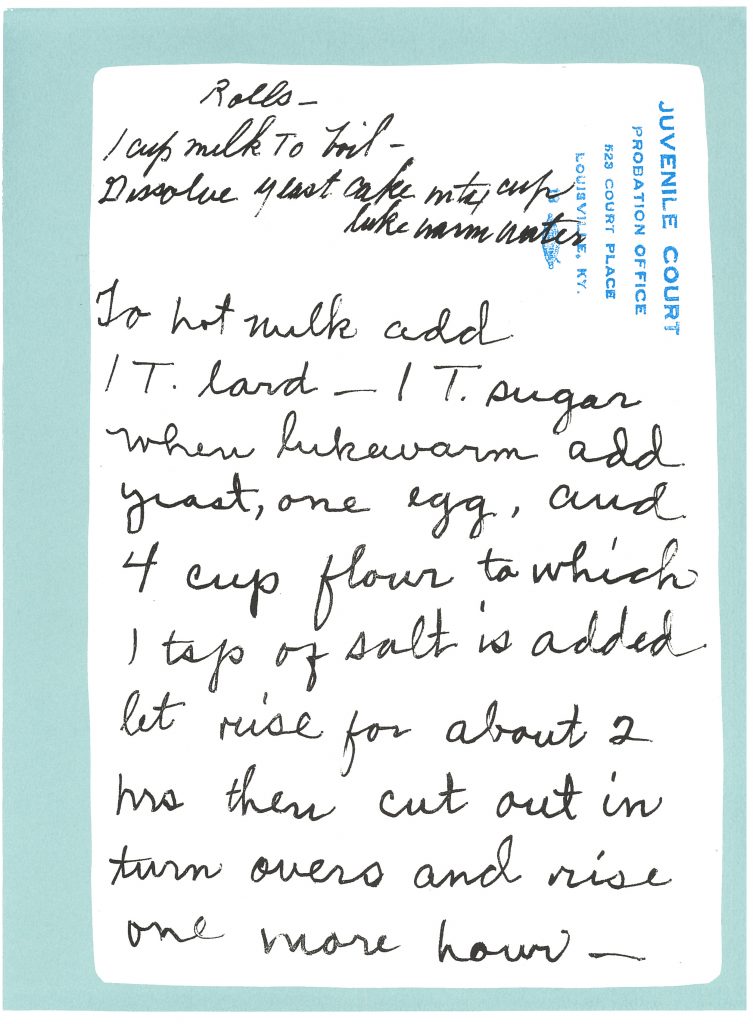 Rolls —
1 cup milk To boil —
Dissolve yeast cake cup
luke warm water
To hot milk add
1 T. lard — 1 T. sugar
when lukewarm add
yeast, one egg, and
4 cup flour to which
1 tsp of salt is added
let rise for about 2
hrs then cut out in
turn overs and rise
one more hour —
JUVENILE COURT
PROBATION OFFICE
523 COURT PLACE
LOUISVILLE, KY.